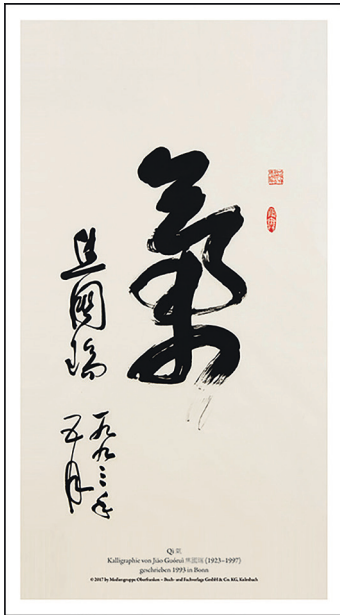 氣
焦國瑞
一九九三年
五月
Qi 氣
Kalligraphie von Jiāo Guóruì 焦國瑞 (1923–1997)
geschrieben 1993 in Bonn
© 2017 by Mediengruppe Oberfranken – Buch- und Fachverlage GmbH & Co. KG, Kulmbach